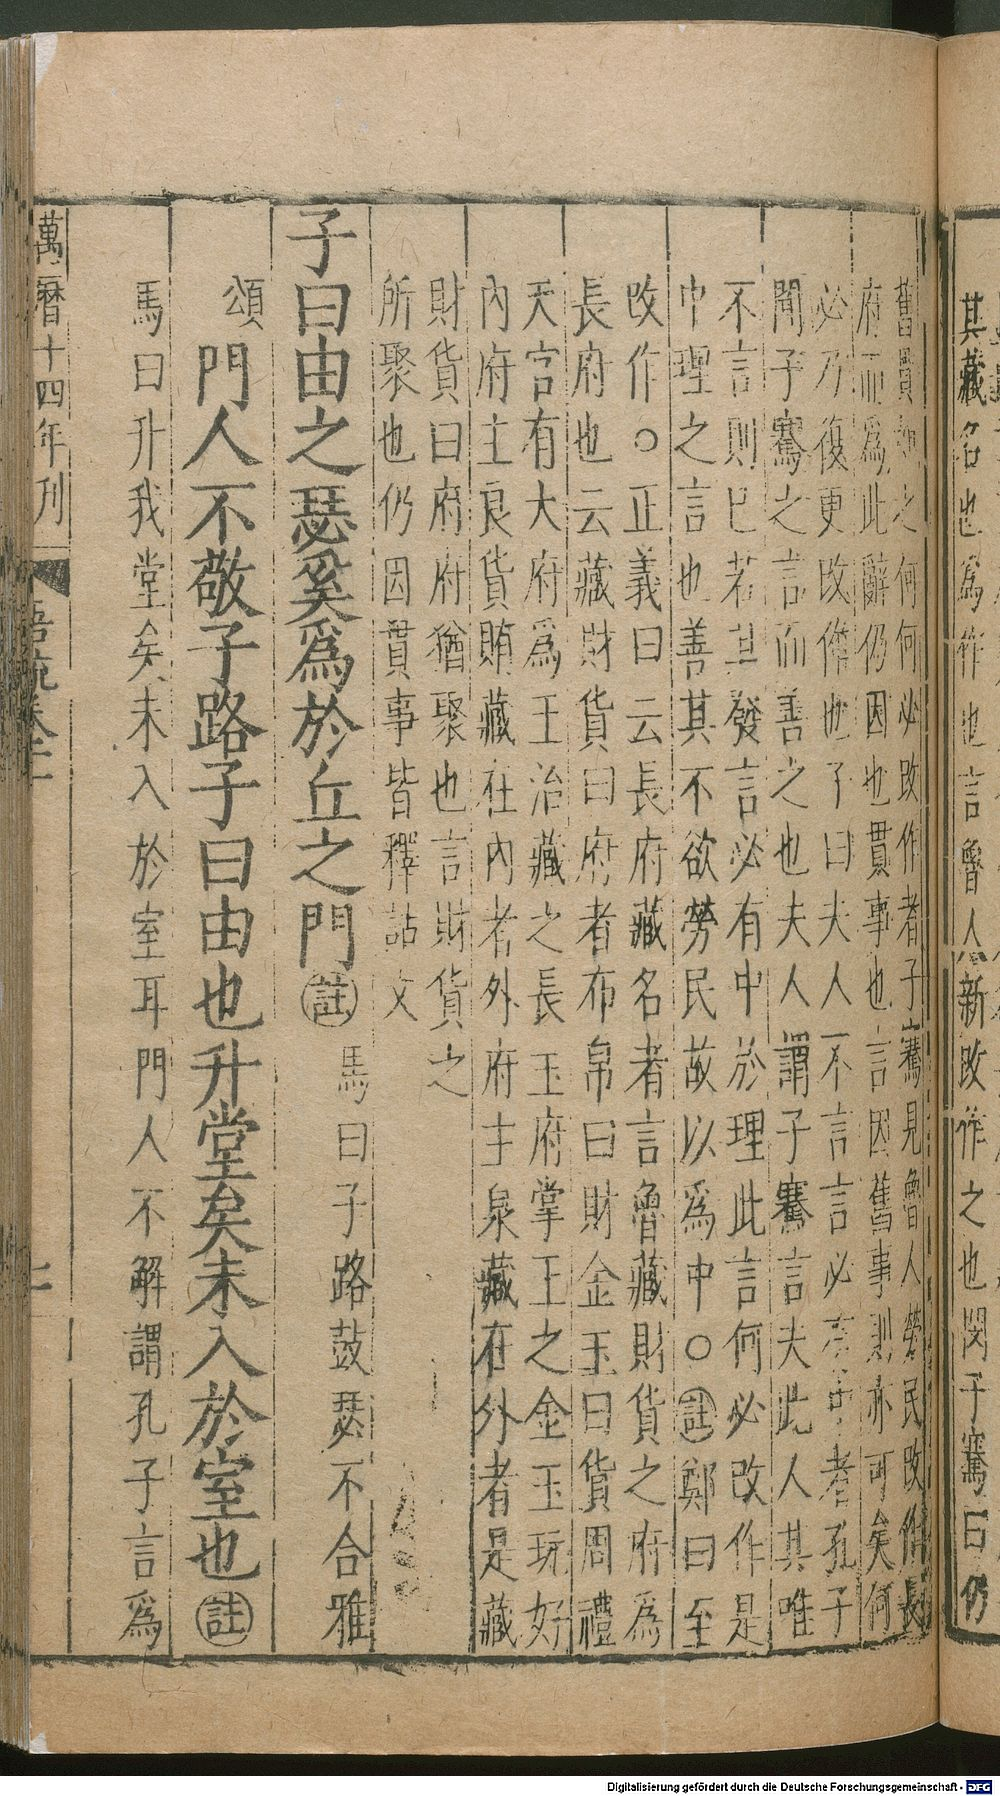 其藏名也爲作也言魯人新改作之也閔子騫曰仍
舊貫之何何必改作者子騫見魯人勞民改作長
府而爲此辭仍因也貫事也言因舊事則亦可矣何
必乃復更改作也子曰夫人不言言必有中者孔子
聞子騫之言而善之也夫人謂子騫言夫此人其唯
不言則已若其發言必有中於理此言何必改作是
中理之言也善其不欲勞民故以爲中○註鄭曰至
改作○正義曰云長府藏名者言魯藏財貨之府爲
長府也云藏財貨曰府者布帛曰財金玉曰貨周禮
天官有大府爲王治藏之長玉府掌王之金玉玩好
內府主良貨賄藏在內者外府主泉藏在外者是藏
財貨曰府府猶聚也言財貨之
所聚也仍因貫事皆釋詁文
子曰由之瑟奚爲於丘之門註馬曰子路鼓瑟不合雅
頌門人不敬子路子曰由也升堂矣未入於室也註
馬曰升我堂矣未入於室耳門人不解謂孔子言爲
萬曆十四年刊
Digitalisierung gefördert durch die Deutsche Forschungsgemeinschaft - DFG